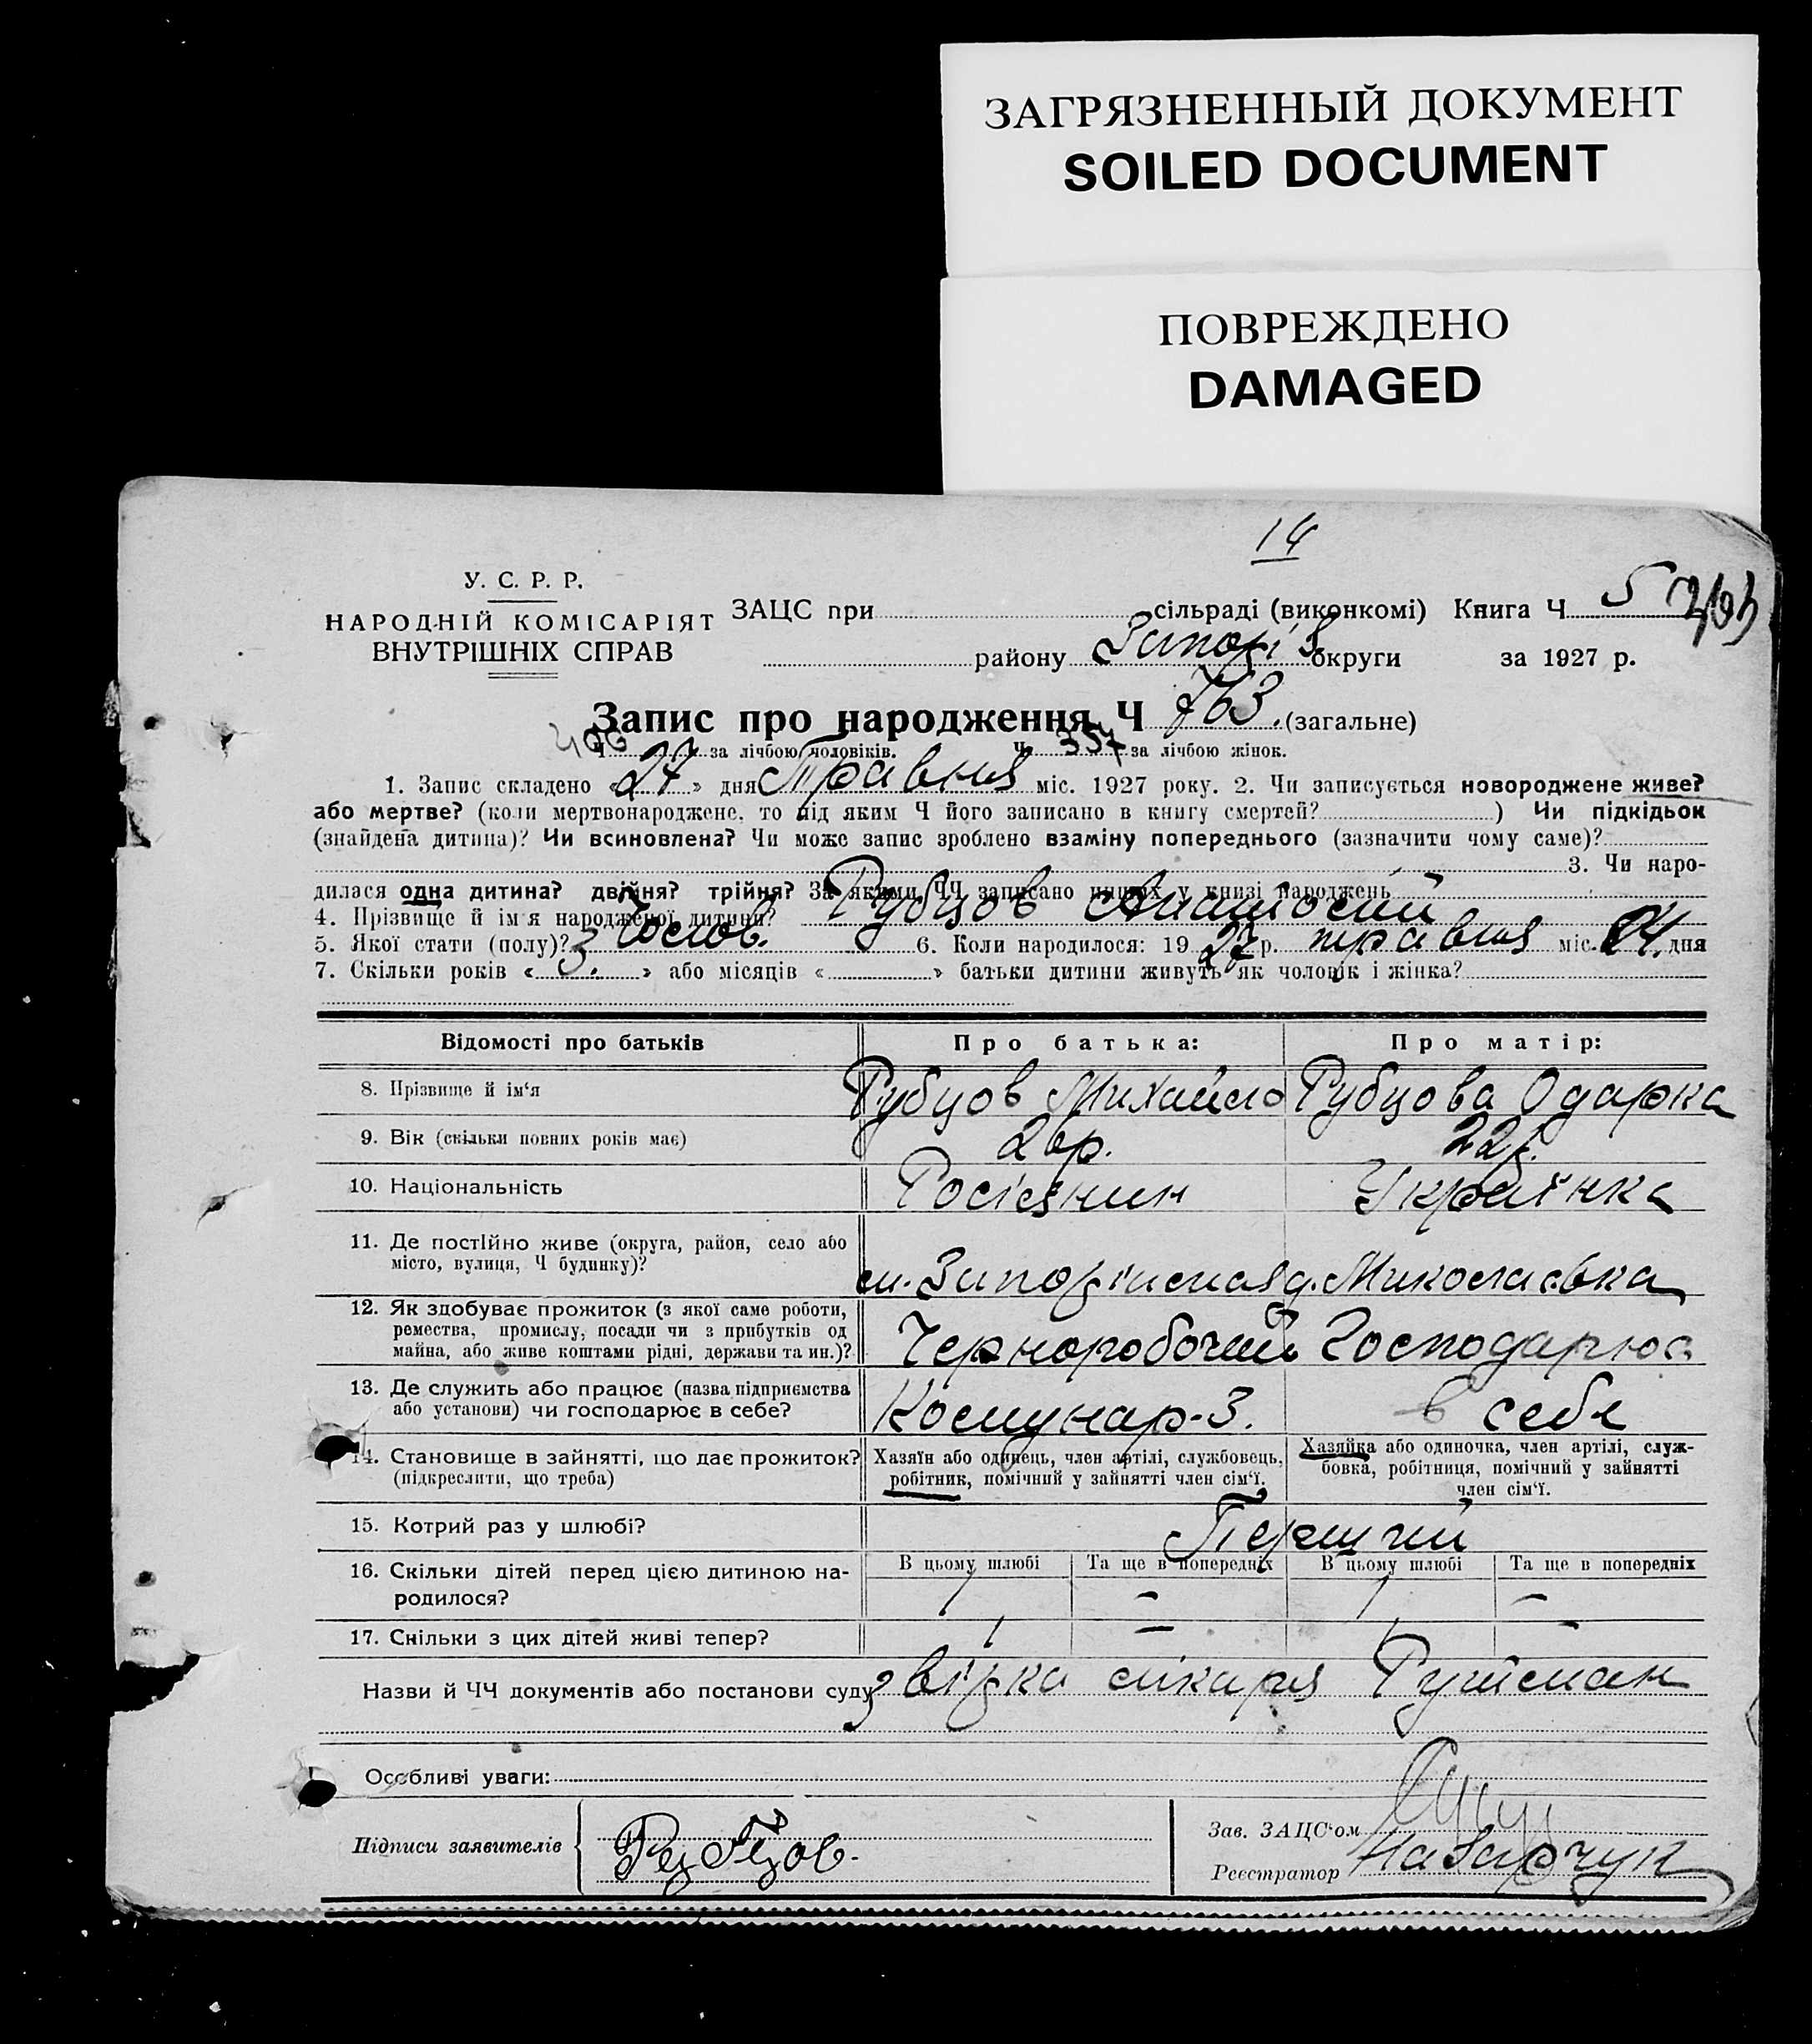 ЗАГРЯЗНЕННЫЙ ДОКУМЕНТ
SOILED DOCUMENT
ПОВРЕЖДЕНО
DAMAGED
14
У. С. Р. Р.
НАРОДНІЙ КОМІСАРІЯТ
ВНУТРІШНІХ СПРАВ
ЗАЦС при сільраді (виконкомі) Книга Ч 5
району Запоріз округи за 1927 р.
Запис про народження Ч 763. (загальне)
Ч 406 за лічбою чоловіків. Ч 357 за лічбою жінок.
1. Запис складено «27» дня Травня міс. 1927 року. 2. Чи записується новороджене живе?
або мертве? (коли мертвонароджене, то під яким Ч його записано в книгу смертей? ) Чи підкідьок
(знайдена дитина)? Чи всиновлена? Чи може запис зроблено взаміну попереднього (зазначити чому саме)?
3. Чи наро-
дилася одна дитина? двійня? трійня? За якими ЧЧ записано инших у книзі народжень
4. Прізвище й ім'я народженої дитини? Рубцов Анатолій
5. Якої стати (полу)? Чолов. 6. Коли народилося: 1927 р. травня міс. 24. дня
7. Скільки років «3.» або місяців « » батьки дитини живуть як чоловік і жінка?
Відомості про батьків Про батька: Про матір:
8. Прізвище й ім'я Рубцов Михайло Рубцова Одарка
9. Вік (скільки повних років має) 26р. 22р.
10. Національність Росіянин Українка
11. Де постійно живе (округа, район, село або
місто, вулиця, Ч будинку)? м. Запоріжжя Миколаєвка
12. Як здобуває прожиток (з якої саме роботи,
ремества, промислу, посади чи з прибутків од
майна, або живе коштами рідні, держави та ин.)? Чорноробочий Господарює
13. Де служить або працює (назва підприємства
або установи) чи господарює в себе? Комунар-З. в себе
14. Становище в зайнятті, що дає прожиток?
(підкреслити, що треба)
Хазяїн або одинець, член артілі, службовець,
робітник, помічний у зайнятті член сім'ї.
Хазяйка або одиночка, член артілі, служ-
бовка, робітниця, помічний у зайнятті
член сім'ї.
15. Котрий раз у шлюбі? Перший
В цьому шлюбі Та ще в попередніх В цьому шлюбі Та ще в попередніх
16. Скільки дітей перед цією дитиною на-
родилося? 1 – 1 –
17. Скільки з цих дітей живі тепер? 1 – 1 –
Назви й ЧЧ документів або постанови суду звізка лікаря Гутман
Особливі уваги:
Підписи заявителів Рубцов.
Зав. ЗАЦС'ом
Реєстратор Назарчук